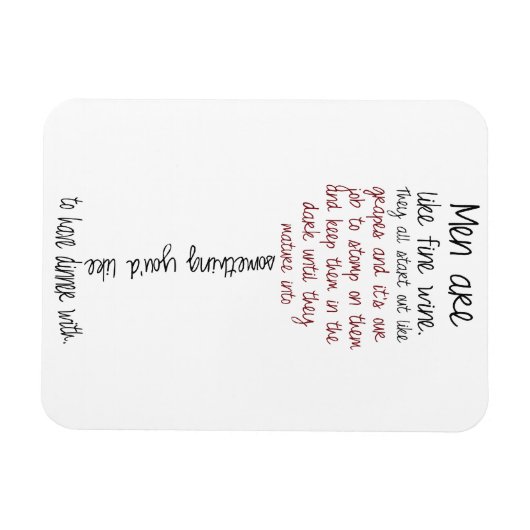 Men are
like fine wine.
They all start out like
grapes and it's our
job to stomp on them
and keep them in the
dark until they
mature into
something you'd like
to have dinner with.